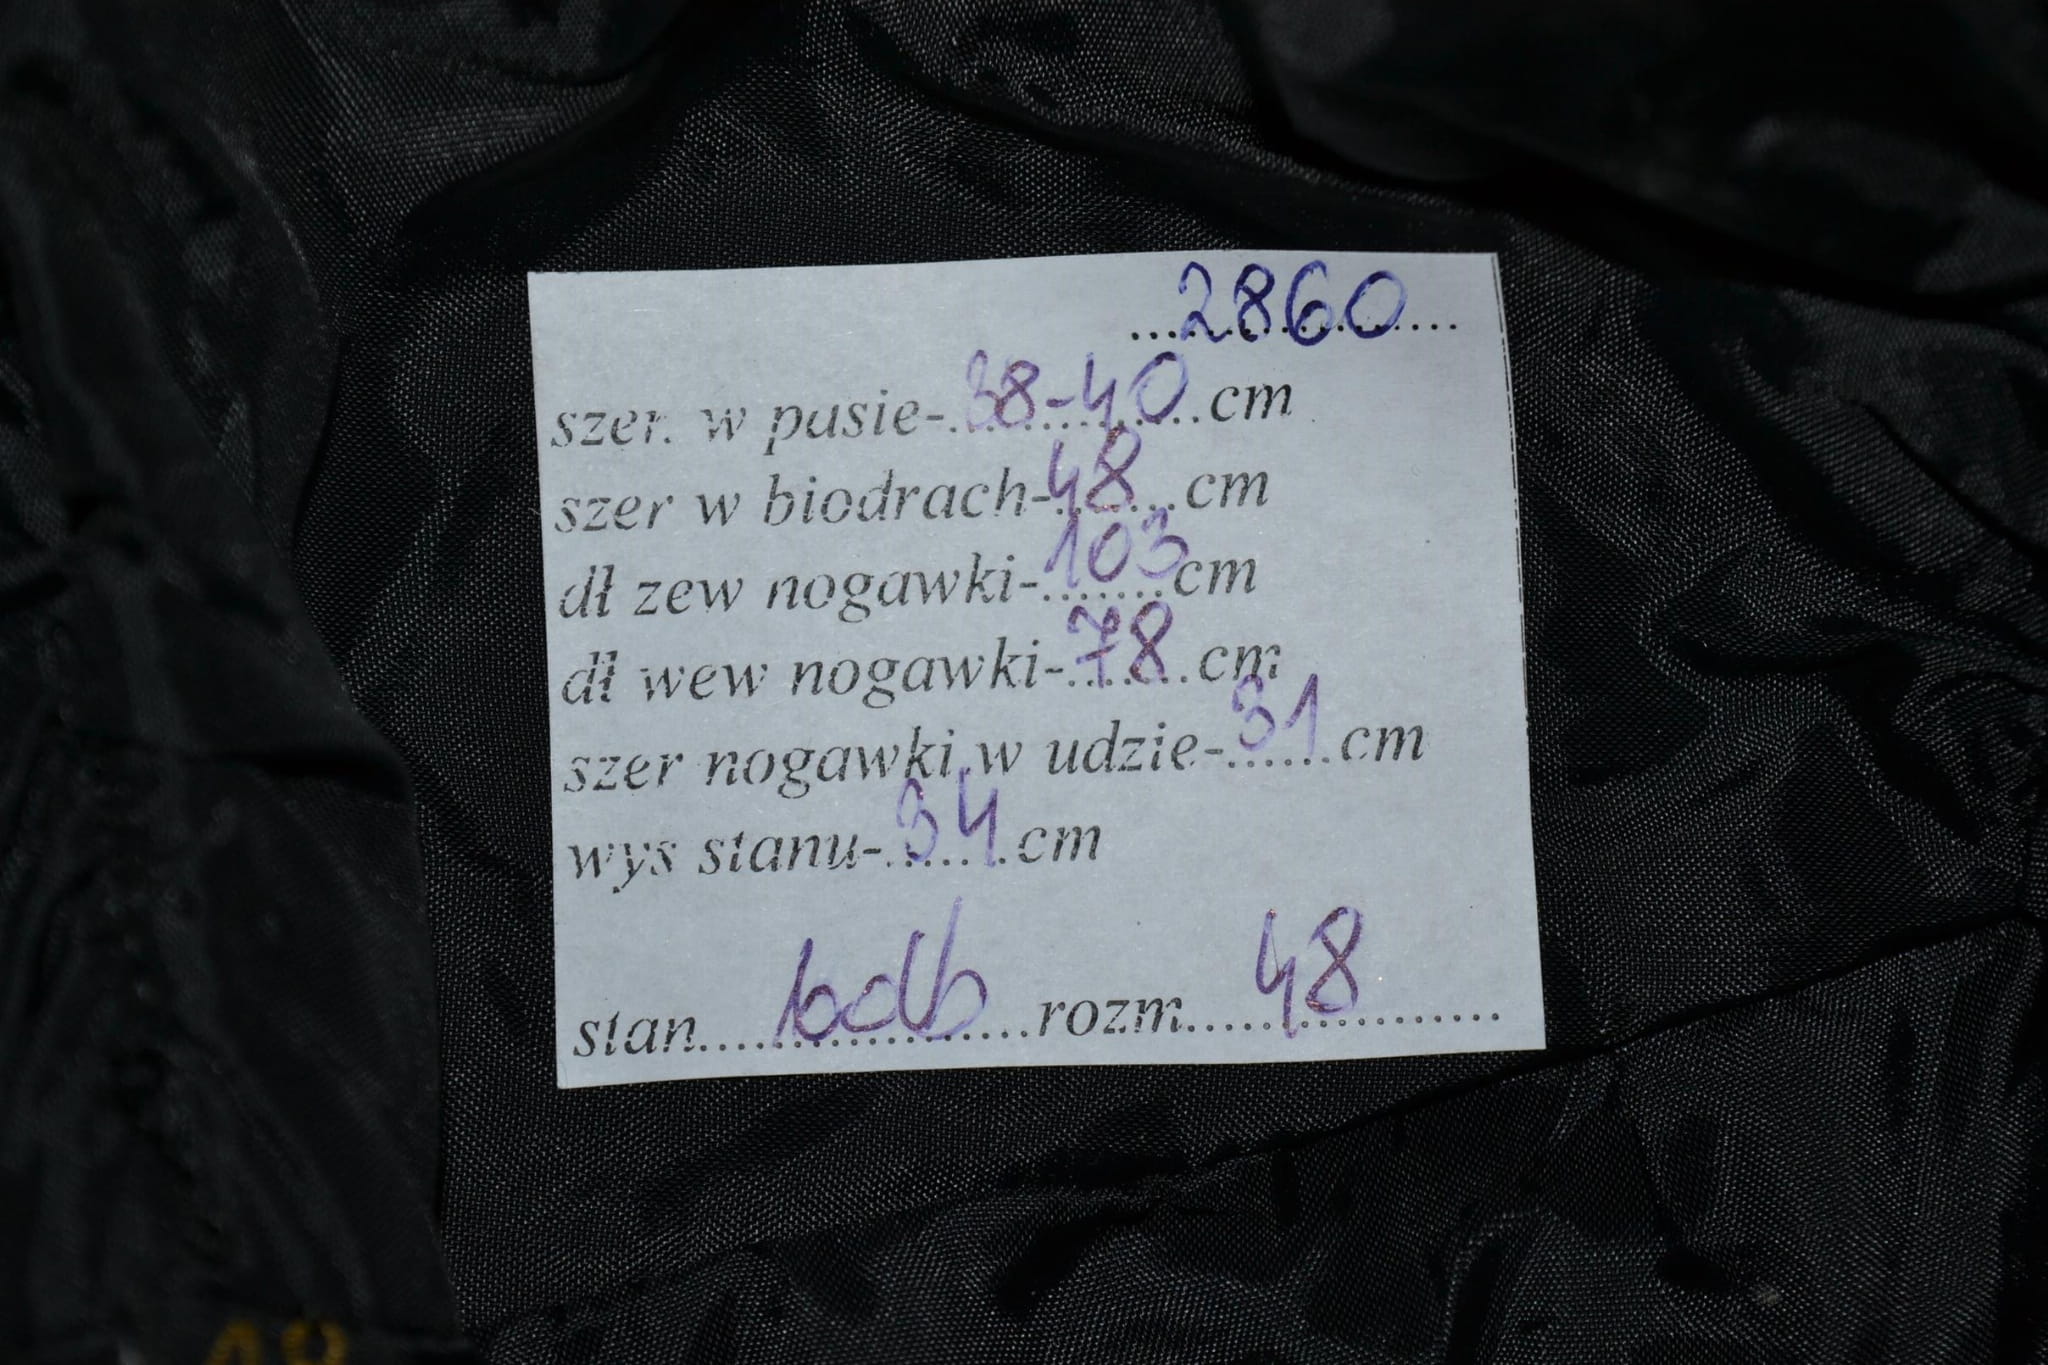 ...2860...
szer. w pasie-.38-40.cm
szer w biodrach-48...cm
dł zew nogawki-103cm
dł wew nogawki-78..cm
szer nogawki w udzie-31.cm
wys stanu-.34.cm
stan....bdb...rozm....48.......
48